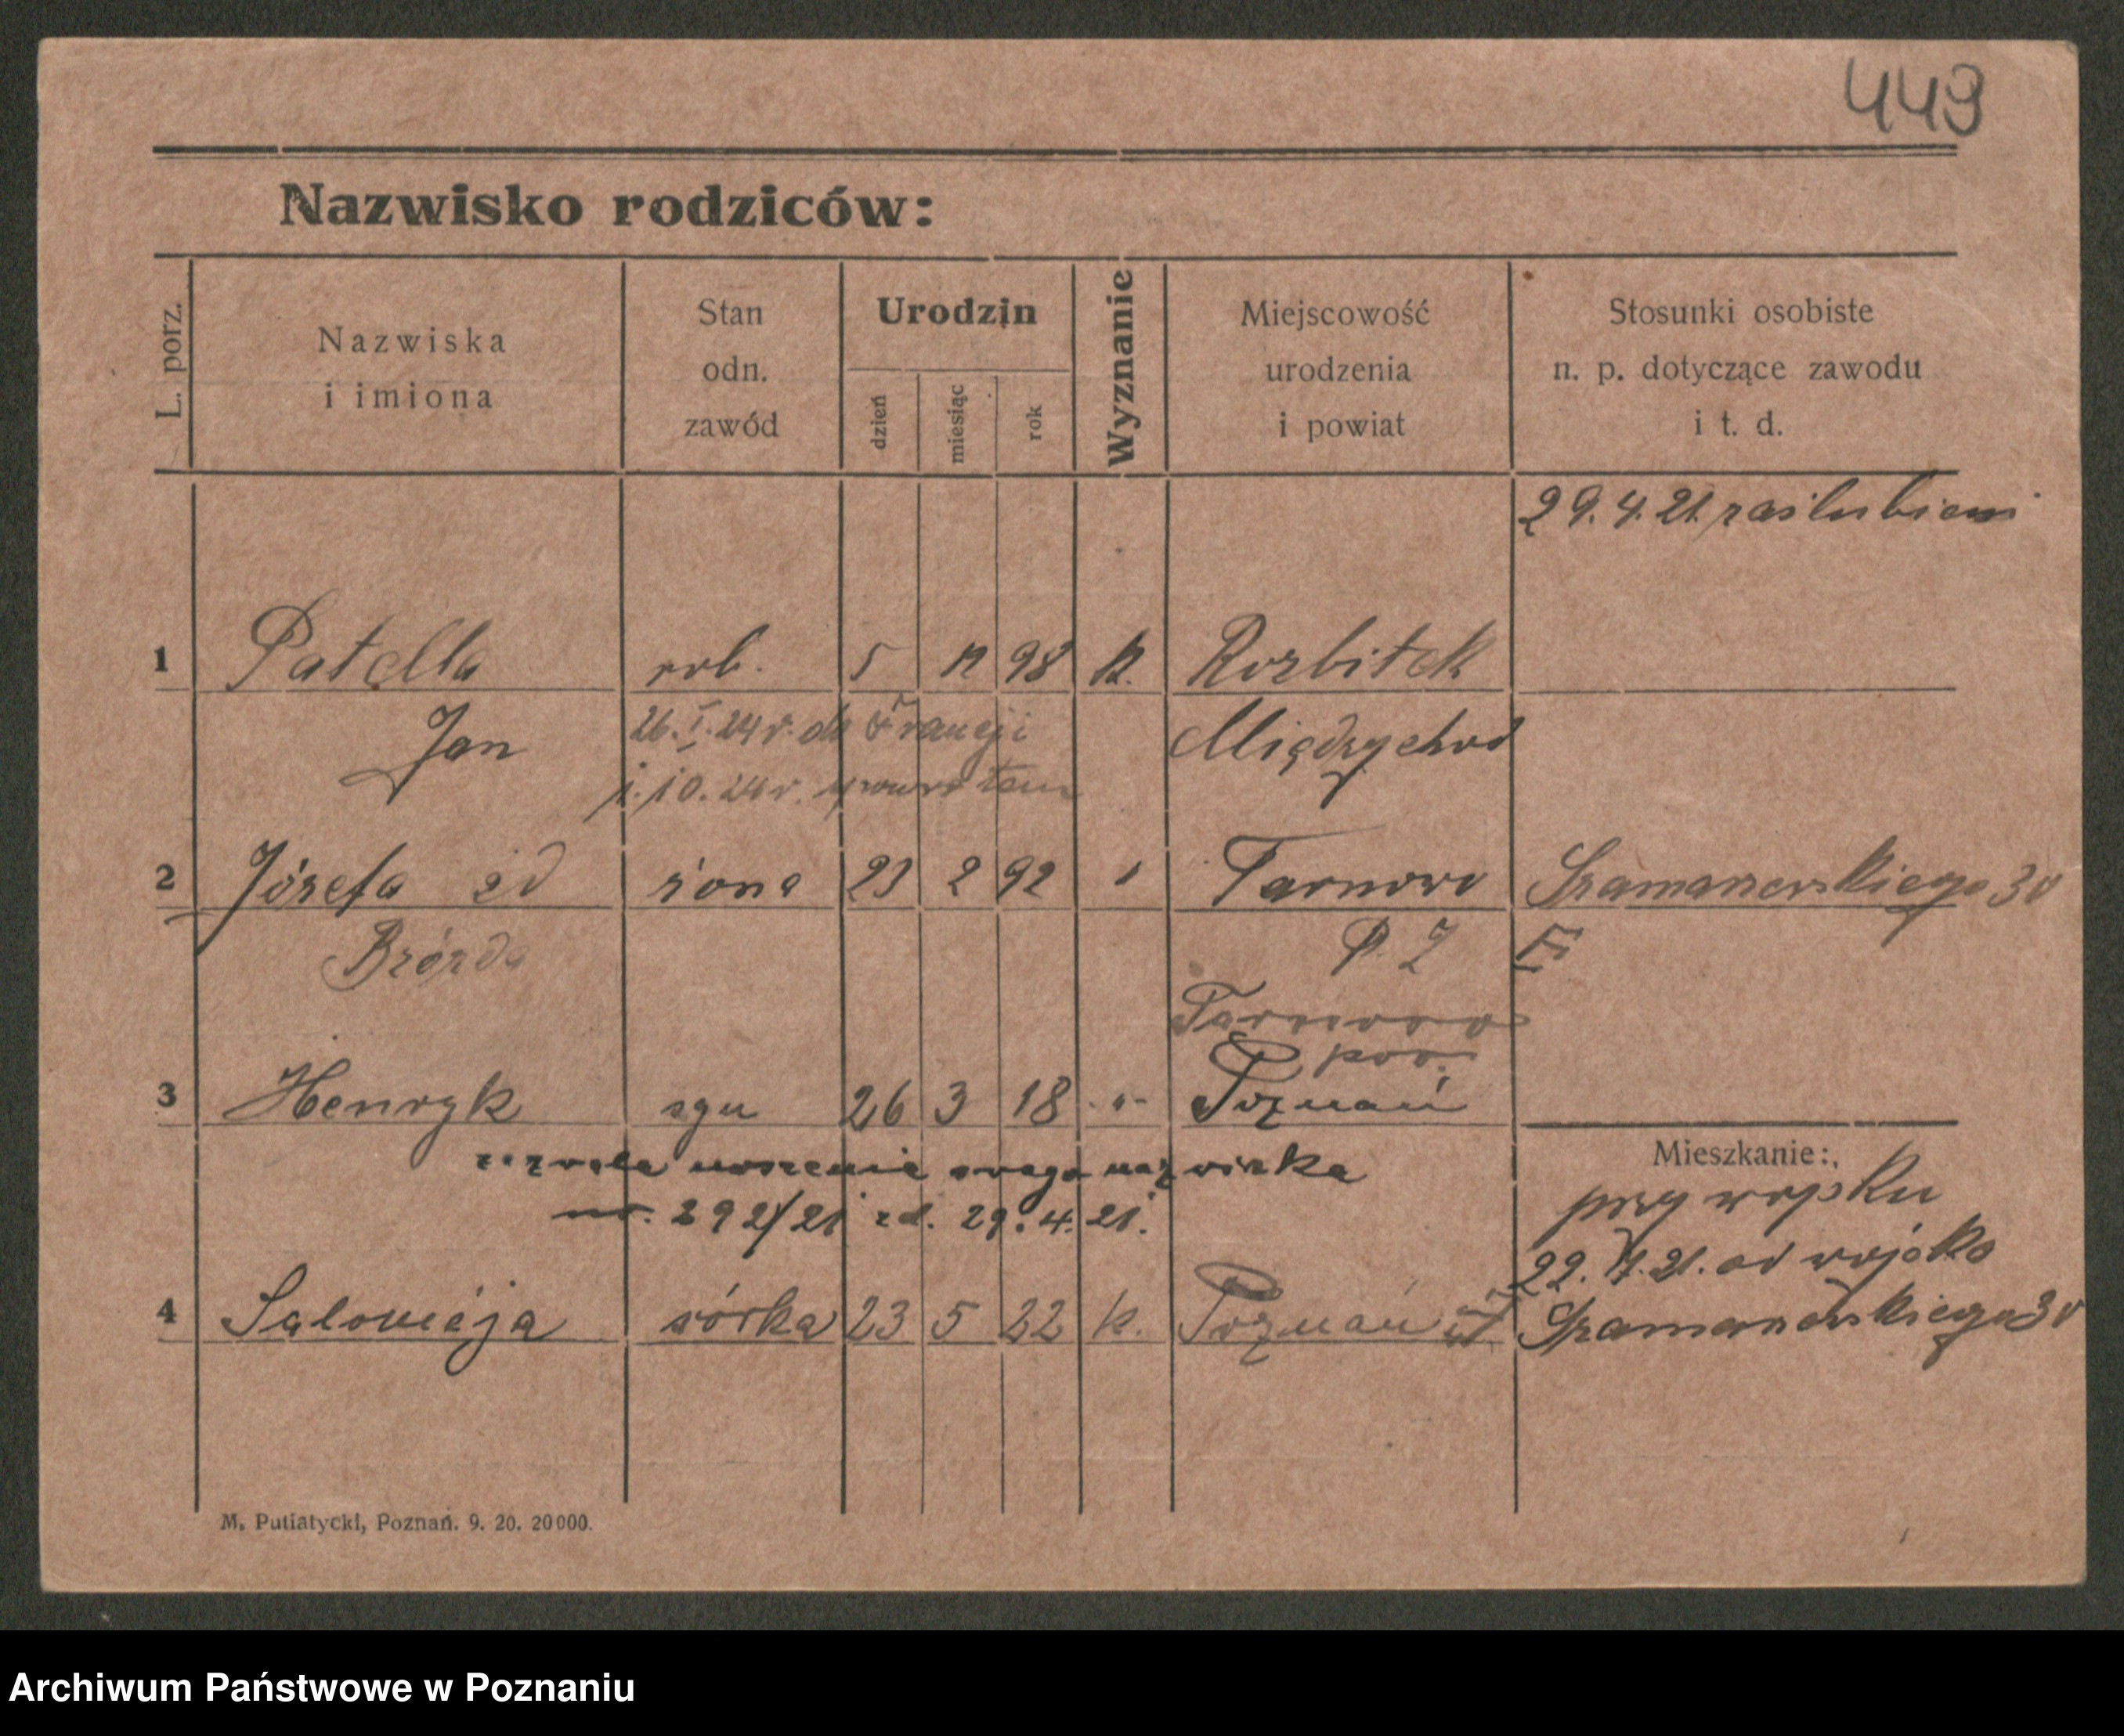 449
Nazwisko rodziców:
L. porz.
Nazwiska
i imiona
Stan
odn.
zawód
Urodzin
dzień
miesiąc
rok
Wyznanie
Miejscowość
urodzenia
i powiat
Stosunki osobiste
n. p. dotyczące zawodu
i t. d.
29. 4. 21. zaślubieni
1 Patella rob. 5 98 k. Rozbitek
Jan 26. I. 24 r. do Francji Międzychod
10. 24 r. z powrotem
2 Józefa zd żona 23 2 92 " Tarnowo Szamarzewskiego 30
Brózda P. Z
Tarnowo
pow.
3 Henryk syn 26 3 18 " Poznań
zezwala noszenie swego nazwiska
nr. 292/21 zd. 29. 4. 21.
Mieszkanie:
przy wojsku
22. 21. od wojska
4 Salomeja córka 23 5 22 k. Poznań Szamarzewskiego 30
M. Putiatycki, Poznań. 9. 20. 20000.
Archiwum Państwowe w Poznaniu